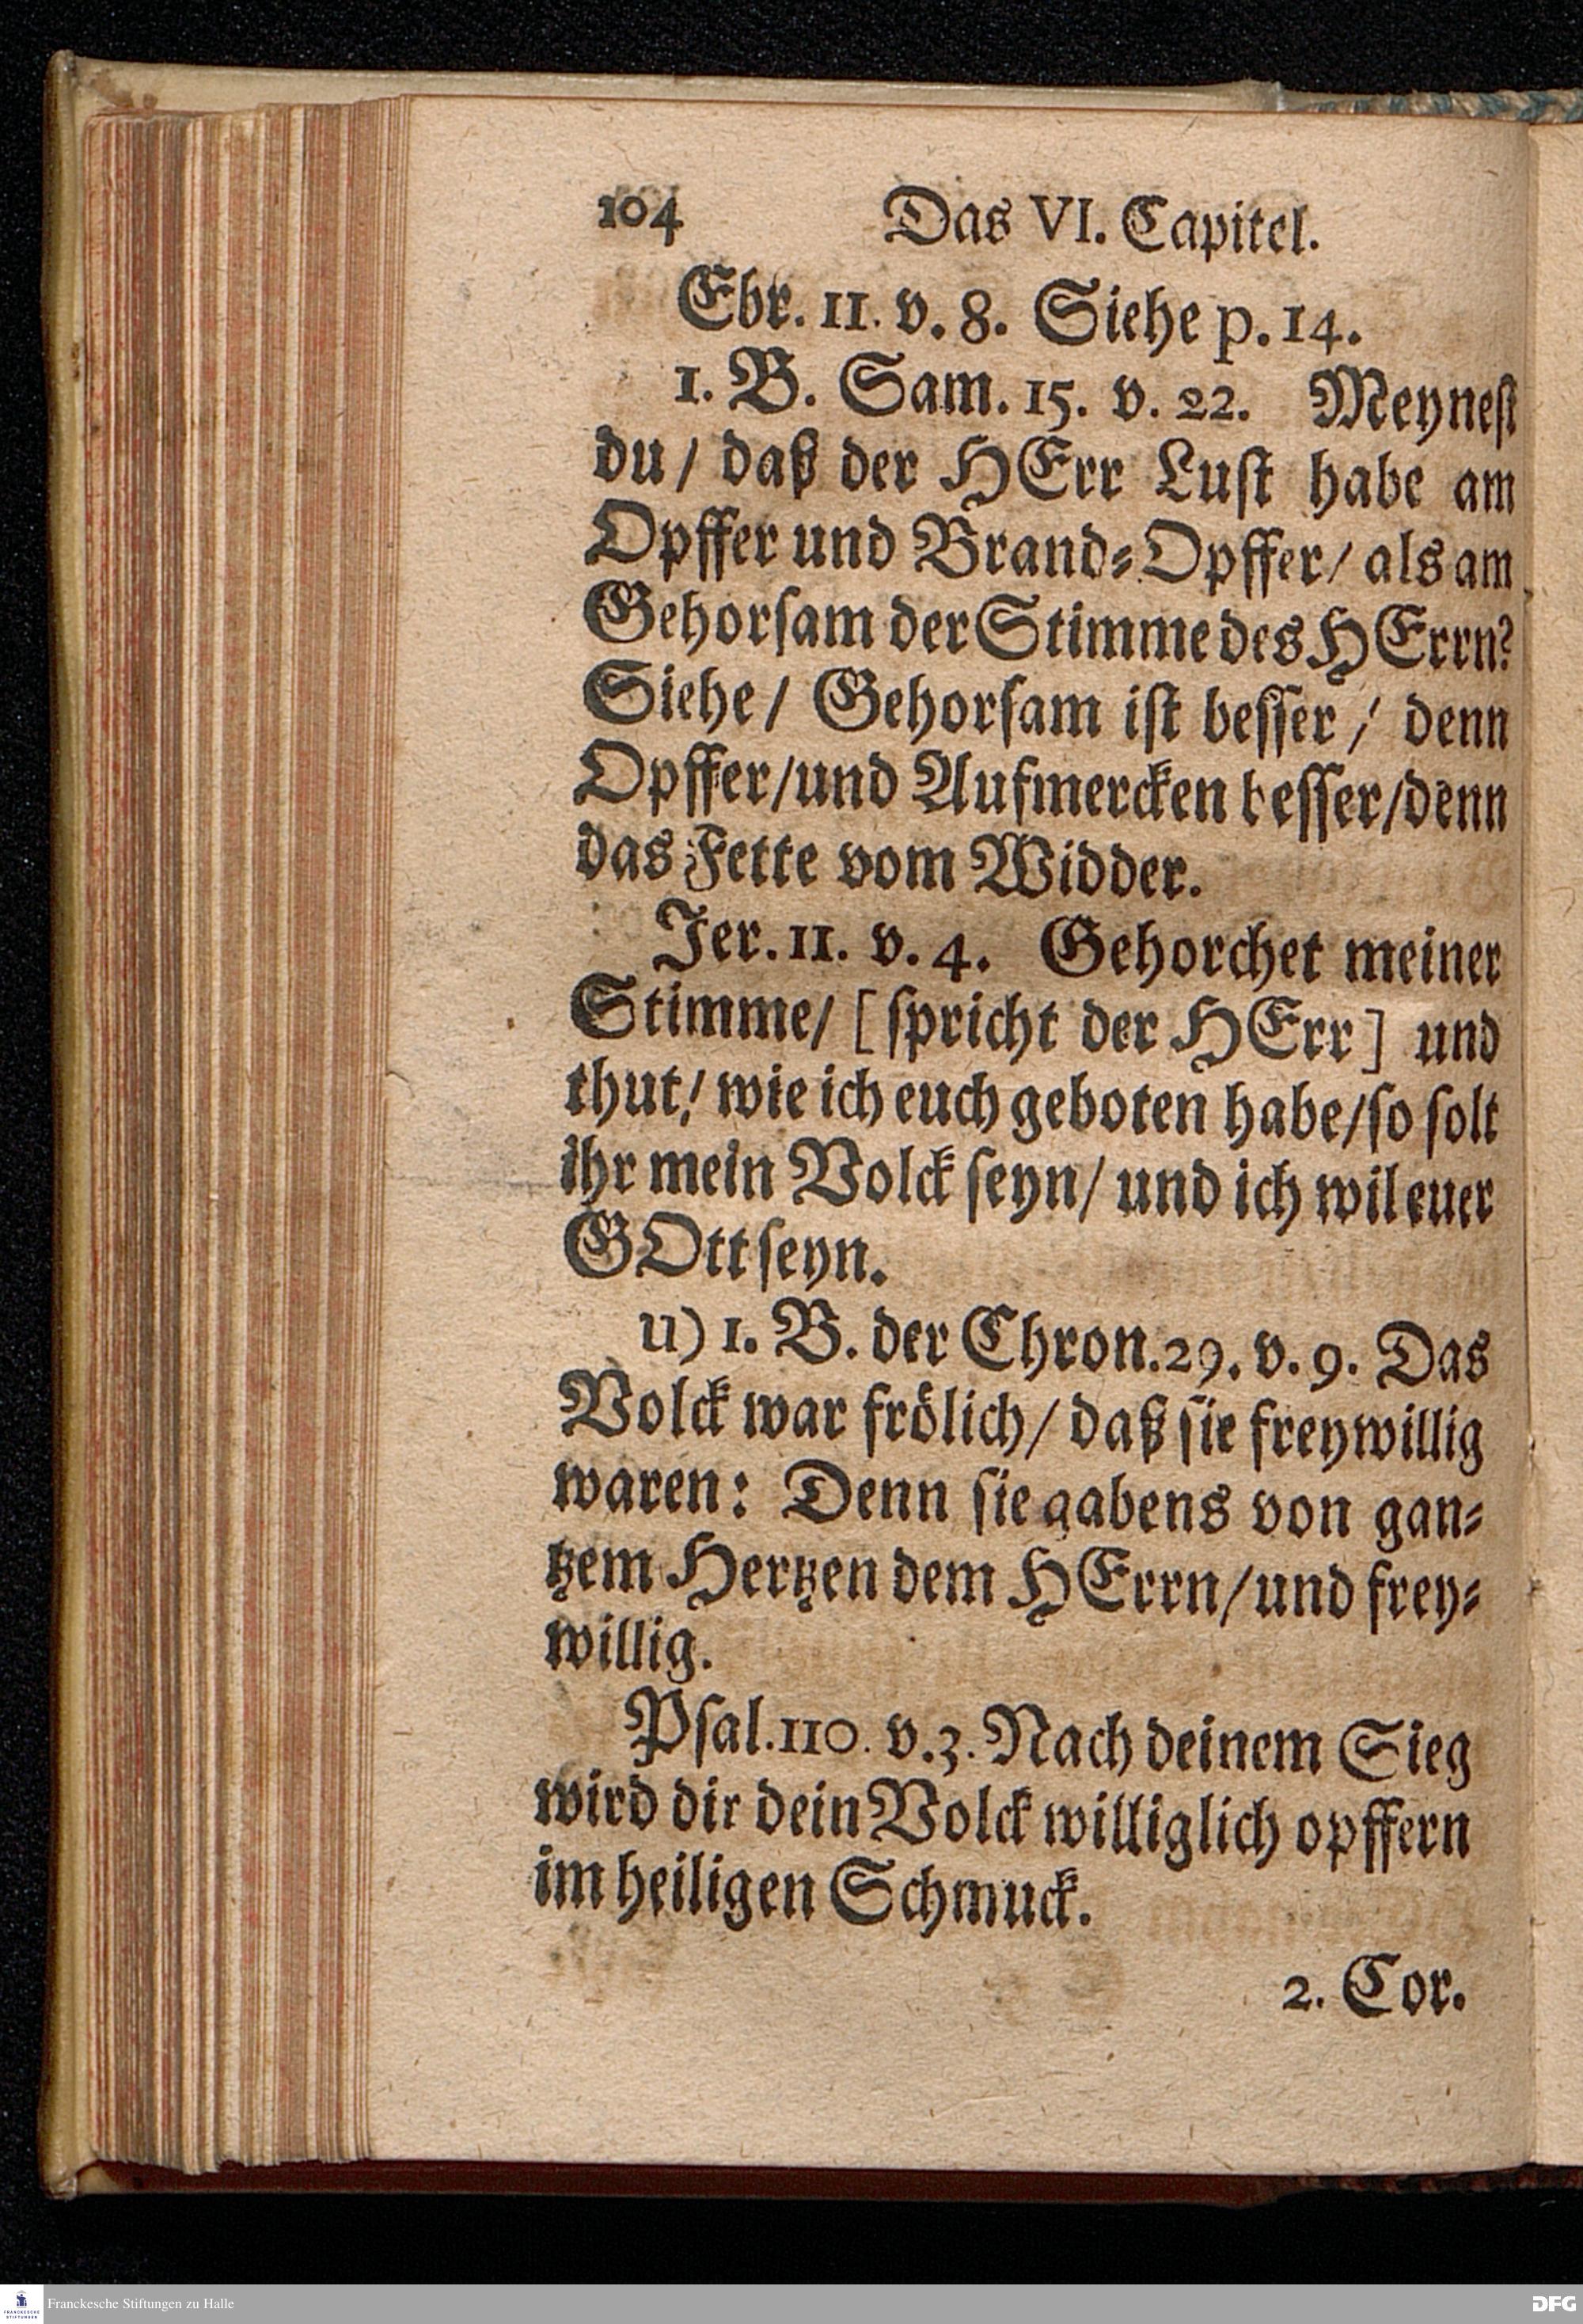 104 Das VI. Capitel.
Ebr. 11. v. 8. Siehe p. 14.
1. B. Sam. 15. v. 22. Meynest
du / daß der HErr Lust habe am
Opffer und Brand-Opffer / als am
Gehorsam der Stimme des HErrn?
Siehe / Gehorsam ist besser / denn
Opffer / und Aufmercken besser / denn
das Fette vom Widder.
Jer. 11. v. 4. Gehorchet meiner
Stimme / [spricht der HErr] und
thut / wie ich euch geboten habe / so solt
ihr mein Volck seyn / und ich wil euer
GOtt seyn.
u) 1. B. der Chron. 29. v. 9. Das
Volck war frölich / daß sie freywillig
waren: Denn sie gabens von gan-
tzem Hertzen dem HErrn / und frey-
willig.
Psal. 110. v. 3. Nach deinem Sieg
wird dir dein Volck williglich opffern
im heiligen Schmuck.
2. Cor.
FRANCKESCHE STIFTUNGEN
Franckesche Stiftungen zu Halle
DFG